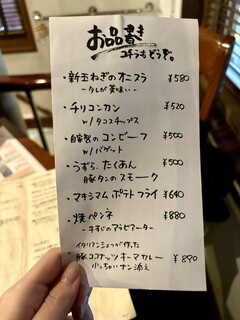 お品書き
コチラもどうぞ。
・新玉ねぎのオニスラ ¥580
-タレが美味い-
・チリコンカン ¥520
w/タコスチップス
・自家製のコンビーフ ¥500
w/バゲット
・うずら、たくあん、 ¥500
豚タンのスモーク
・マキシマムポテトフライ ¥640
・焼ペンネ ¥880
-牛すじのアラビアータ-
イタリアンシェフが作った
・豚ココナッツキーマカレー ¥890
小っちゃいナン添え